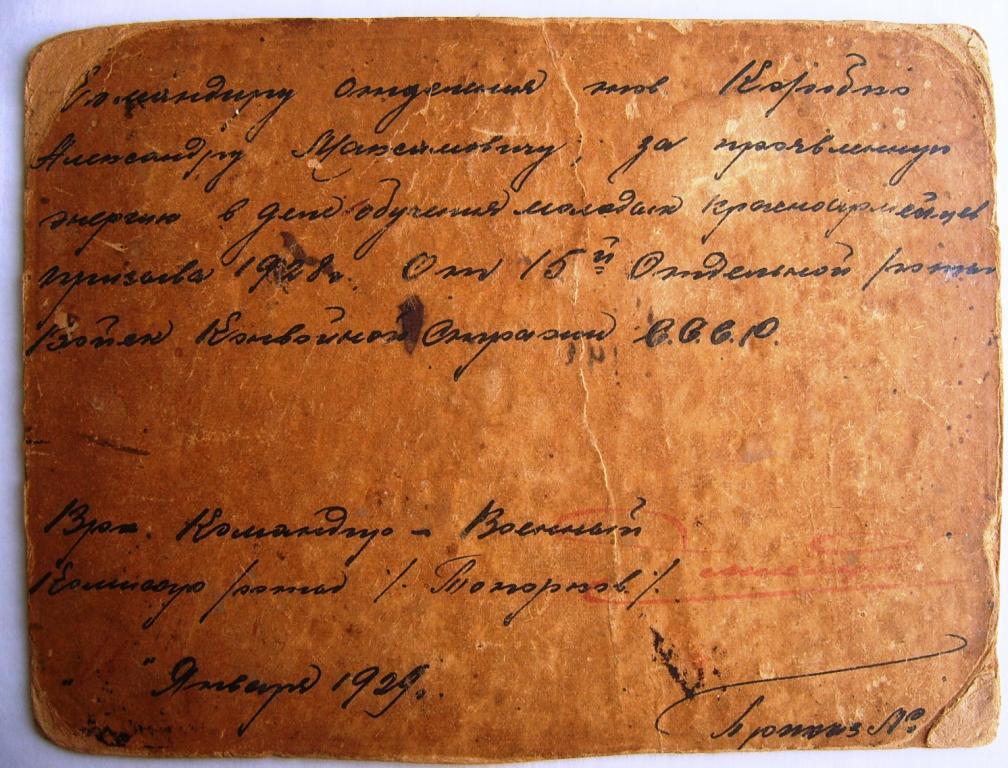 Командиру отделения тов Коробко
Александру Максимовичу, за проявленную
энергию в деле обучения молодых красноармейцев
призыва 1928г. От 15й Отдельной роты
Войск Конвойной Стражи С.С.С.Р.
Врид. Командир - Военный
Комиссар роты /. Топорков. /.
" " Января 1929г.
Приказ №